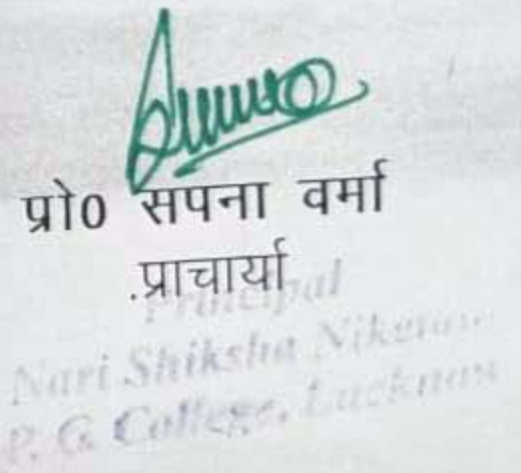 प्रो0 सपना वर्मा
.प्राचार्या
Principal
Nari Shiksha Niketan
P. G. College, Lucknow